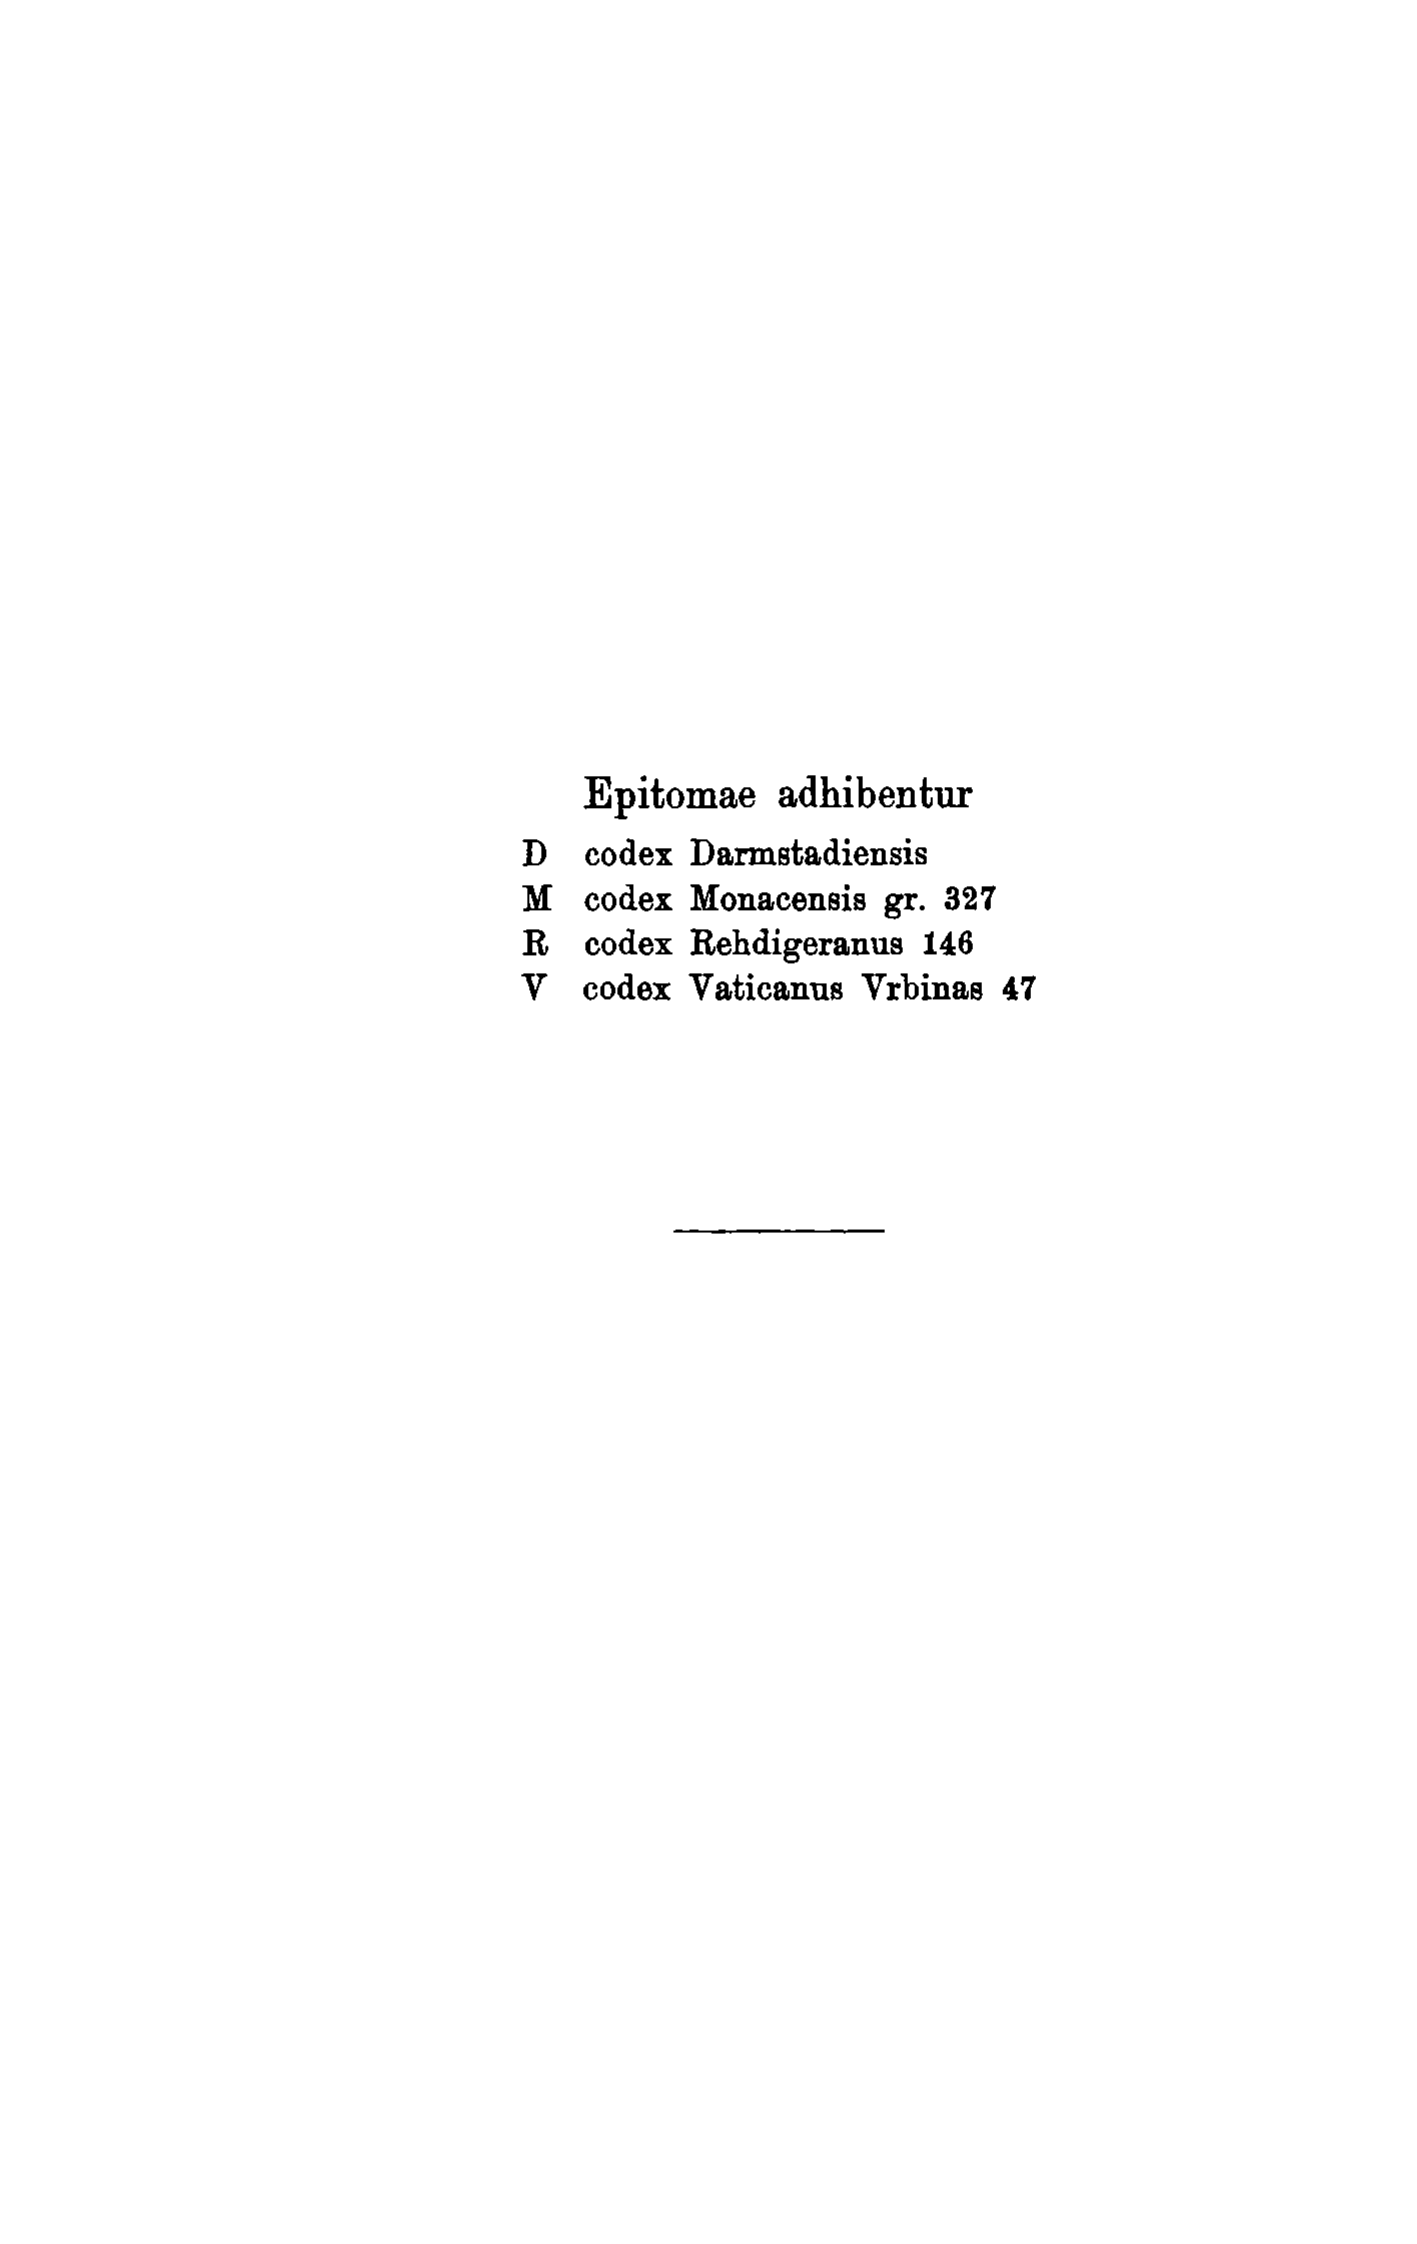 Epitomae adhibentur
D codex Darmstadiensis
M codex Monacensis gr. 327
R codex Rehdigeranus 146
V codex Vaticanus Vrbinas 47